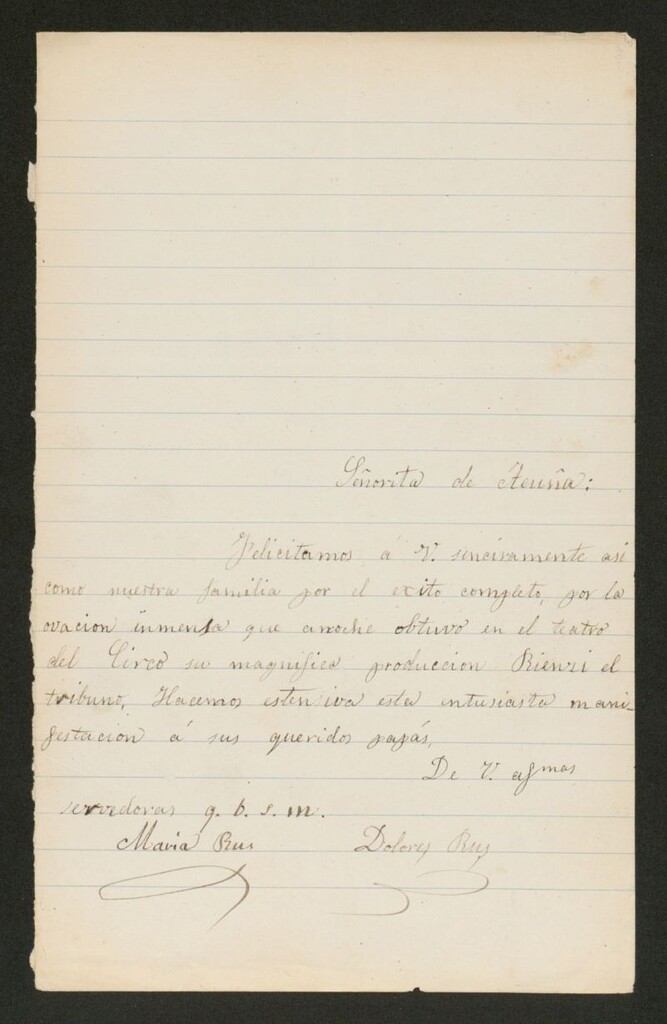 Señorita de Acuña:
Felicitamos á V. sinceramente asi
como nuestra familia por el exito completo, por la
ovacion inmensa que anoche obtuvo en el teatro
del Circo su magnifica produccion Rienzi el
tribuno, Hacemos estensiva esta entusiasta mani-
festacion á sus queridos papás,
De V. afmas
servidoras q. b. s. m.
Maria Rus Dolores Rus